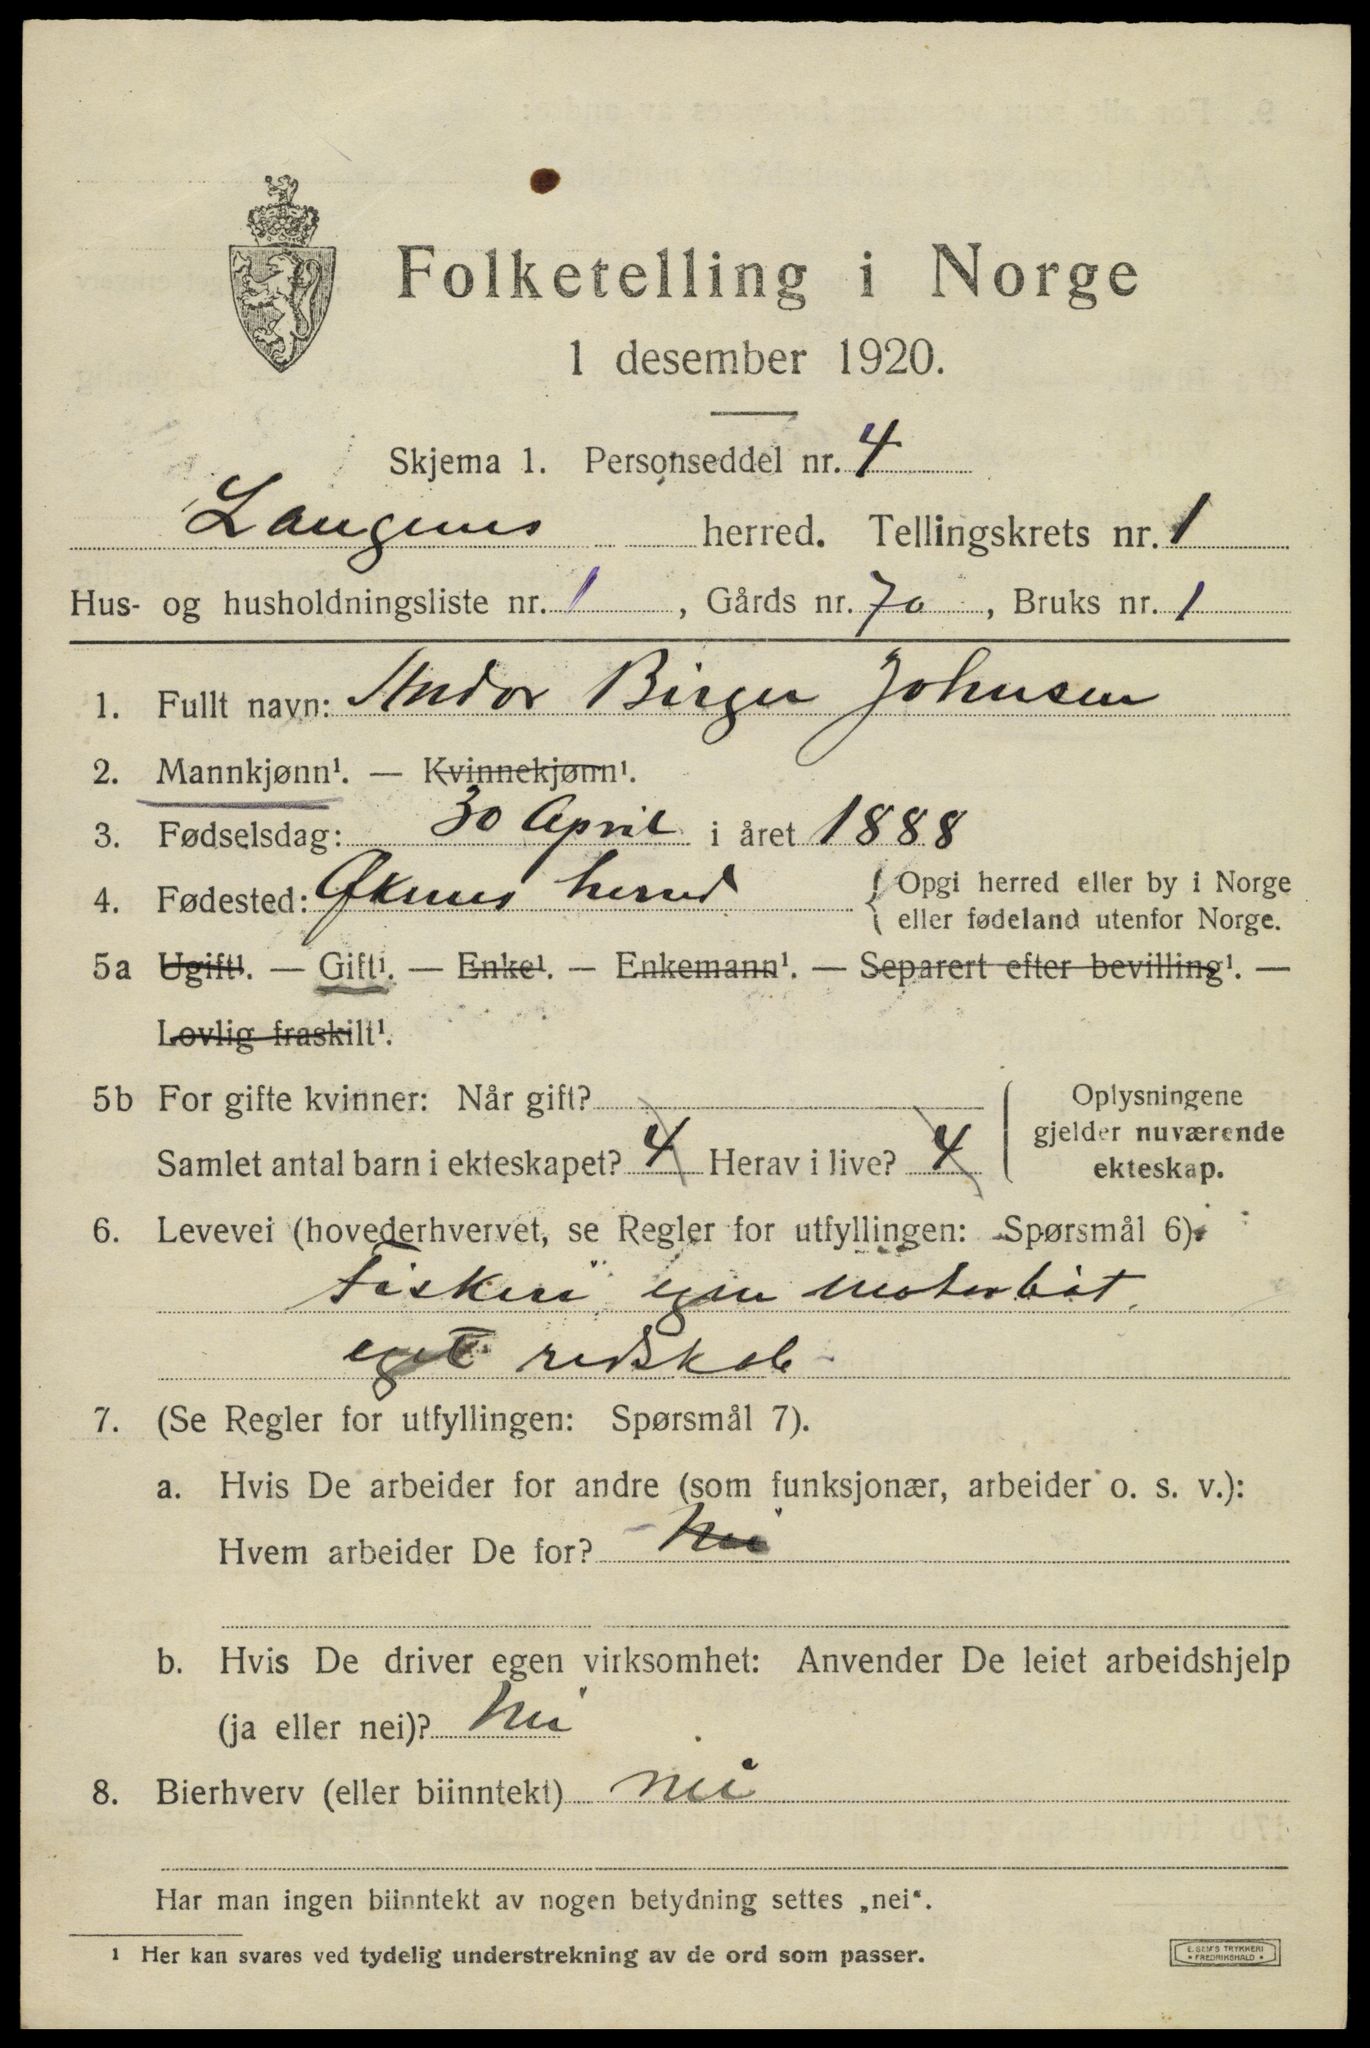 Folketelling i Norge
1 desember 1920.
Skjema 1. Personseddel nr. 4
Langenes herred. Tellingskrets nr. 1
Hus- og husholdningsliste nr. 1, Gårds nr. 70, Bruks nr. 1
1. Fullt navn: Andor Birger Johnsen
2. Mannkjønn¹. — Kvinnekjønn¹.
3. Fødselsdag: 30 April i året 1888
4. Fødested: Øksnes herred { Opgi herred eller by i Norge
eller fødeland utenfor Norge.
5a Ugift¹. — Gift¹. — Enke¹. — Enkemann¹. — Separert efter bevilling¹. —
Lovlig fraskilt¹.
5b For gifte kvinner: Når gift?
Samlet antal barn i ekteskapet? 4 Herav i live? 4
Oplysningene
gjelder nuværende
ekteskap.
6. Levevei (hovederhvervet, se Regler for utfyllingen: Spørsmål 6):
Fiskeri egen motorbåt.
eget redskab
7. (Se Regler for utfyllingen: Spørsmål 7).
a. Hvis De arbeider for andre (som funksjonær, arbeider o. s. v.):
Hvem arbeider De for? Nei
b. Hvis De driver egen virksomhet: Anvender De leiet arbeidshjelp
(ja eller nei)? Nei
8. Bierhverv (eller biinntekt) nei
Har man ingen biinntekt av nogen betydning settes „nei“.
¹ Her kan svares ved tydelig understrekning av de ord som passer.
E. SEM'S TRYKKERI
• FREDRIKSHALD •